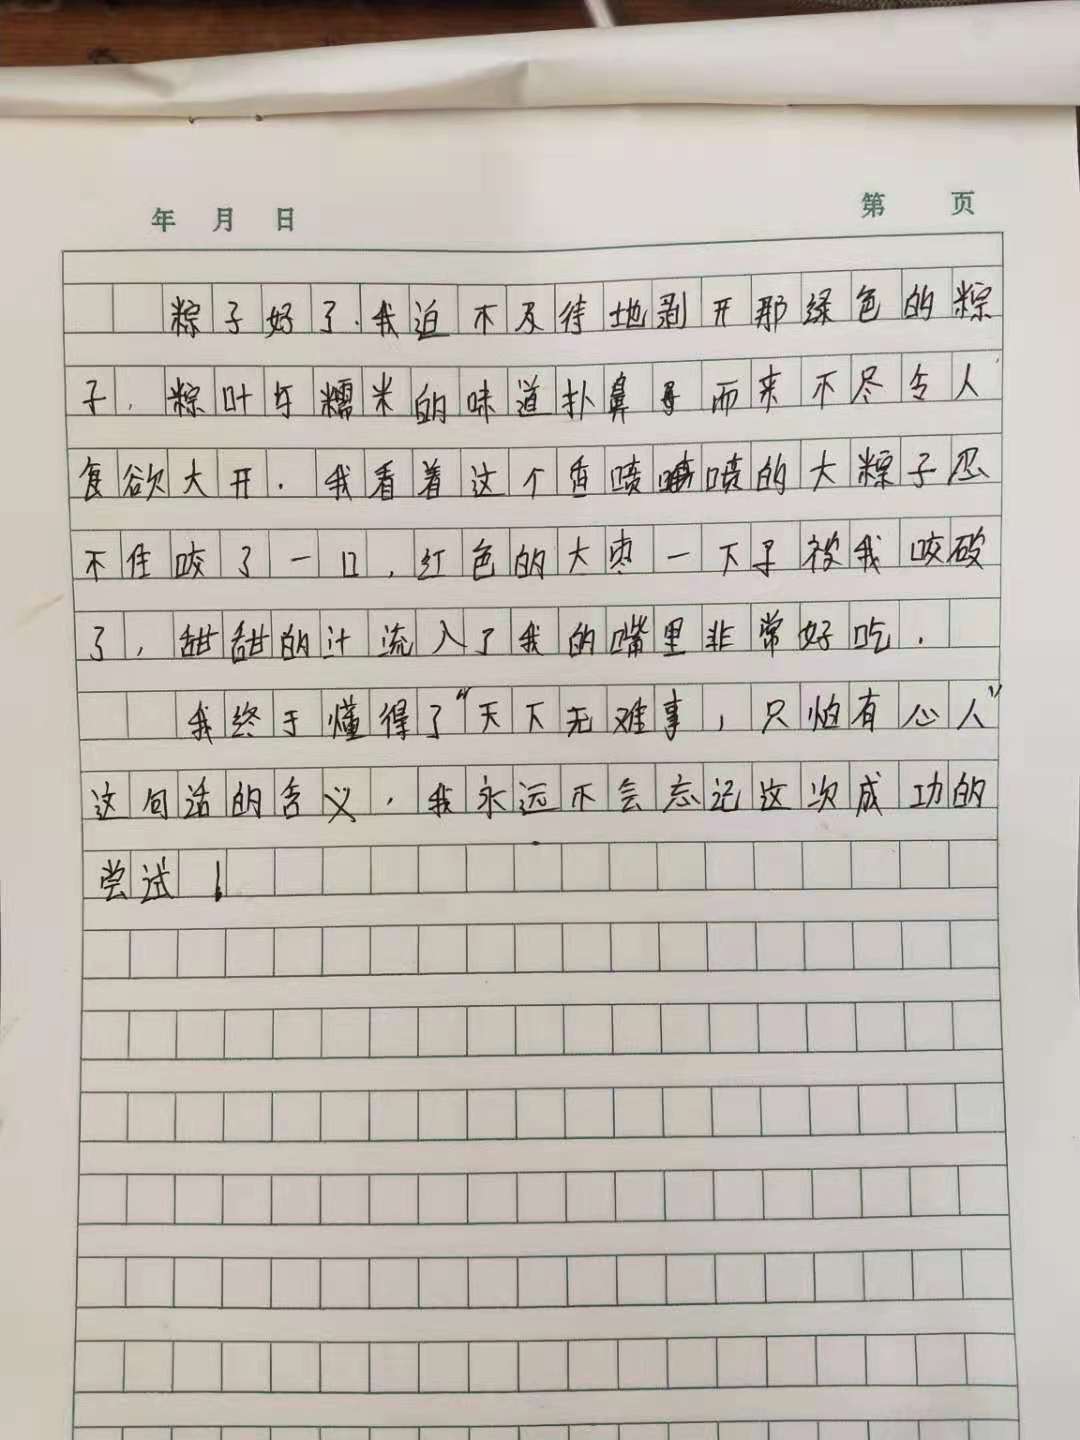 年 月 日 第 页
粽子好了.我迫不及待地剥开那绿色的粽
子,粽叶与糯米的味道扑鼻而来不尽令人
食欲大开.我看着这个香喷喷的大粽子忍
不住咬了一口,红色的大枣一下子被我咬破
了,甜甜的汁流入了我的嘴里非常好吃.
我终于懂得了“天下无难事,只怕有心人”
这句话的含义.我永远不会忘记这次成功的
尝试!